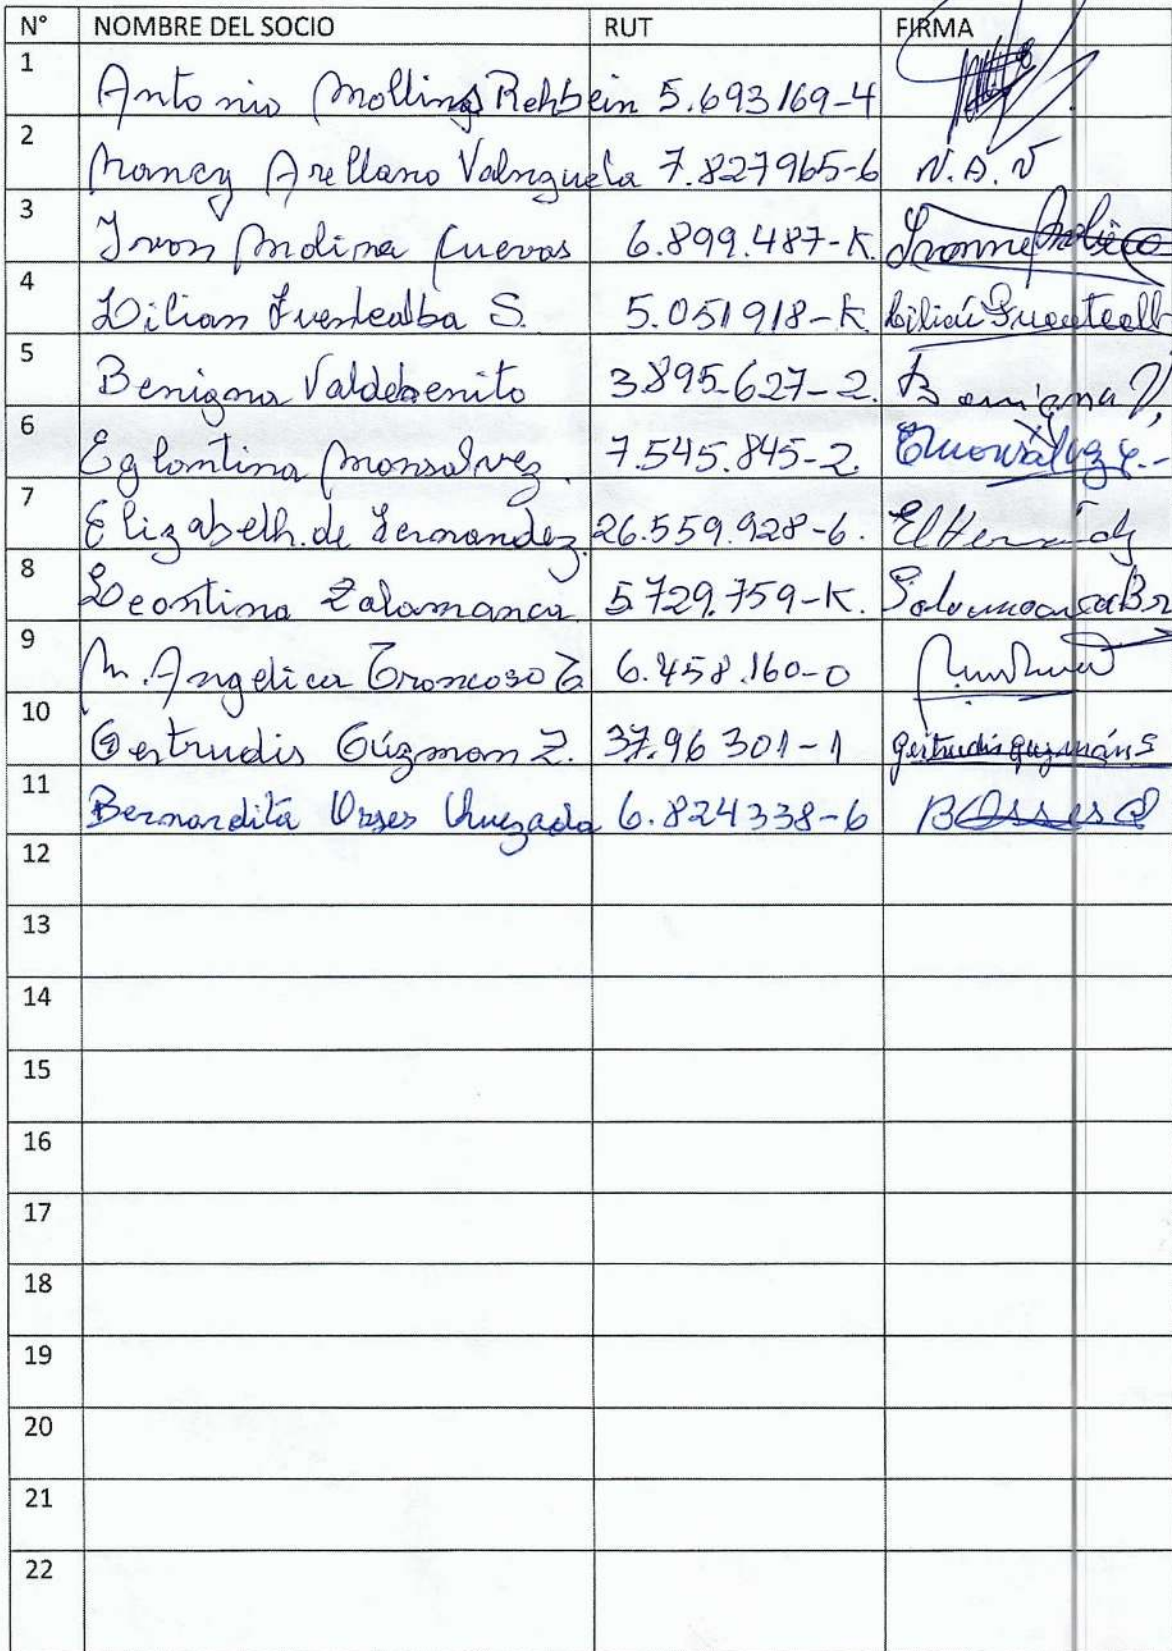 N° NOMBRE DEL SOCIO RUT FIRMA
1 Antonio Mollinas Rehbein 5.693169-4
2 Nancy Arellano Valnzguela 7.827965-6 N.A.V
3 Ivon Molina Cuevas 6.899.487-K. Ivonne Molina
4 Lilian Fuentealba S. 5.051918-K Lilian Fuentealb
5 Benigna Valdebenito 3.895.627-2. Benigna V,
6 Eglontina Monsalvez 7.545.845-2
7 Elizabelh. de Hernandez. 26.559.928-6.
8 Leontina Zalamanca 5.729.759-K.
9 M. Angelica Troncoso T. 6.458.160-0
10 Gertrudis Gúzman Z. 37.96 301-1 Gertrudis Guzmán S
11 Bernardita Osses Quezada 6.824338-6 B Osses Q
12
13
14
15
16
17
18
19
20
21
22